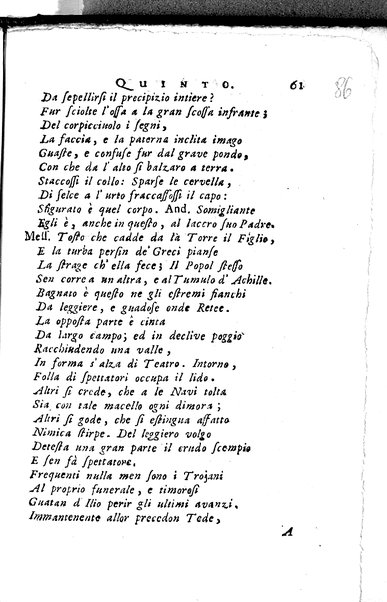 QUINTO. 61
86
Da ſepellirſi il precipizio intiere?
Fur ſciolte l'oſſa a la gran ſcoſſa infrante;
Del corpicciuolo i ſegni,
La faccia, e la paterna inclita imago
Guaſte, e confuſe fur dal grave pondo,
Con che da l'alto ſi balzaro a terra.
Staccoſſi il collo: Sparſe le cervella,
Di ſelce a l'urto fraccaſſoſſi il capo:
Sfigurato è quel corpo. And. Somigliante
Egli è, anche in queſto, al lacero ſuo Padre.
Meſſ. Toſto che cadde da là Torre il Figlio,
E la turba perfin de' Greci pianſe
La ſtrage ch'ella fece; Il Popol ſteſſo
Sen corre a un altra, e al Tumulo d'Achille.
Bagnato è queſto ne gli eſtremi fianchi
Da leggiere, e guadoſe onde Retee.
La oppoſta parte è cinta
Da largo campo; ed in declive poggio
Racchiudendo una valle,
In forma s'alza di Teatro. Intorno,
Folla di ſpettatori occupa il lido.
Altri ſi crede, che a le Navi tolta
Sia con tale macello ogni dimora;
Altri ſi gode, che ſi eſtingua affatto
Nimica ſtirpe. Del leggiero volgo
Deteſta una gran parte il crudo ſcempio
E ſen fà ſpettatore.
Frequenti nulla men ſono i Trojani
Al proprio funerale, e timoroſi
Guatan d'Ilio perir gli ultimi avanzi.
Immantenente allor precedon Tede,
A